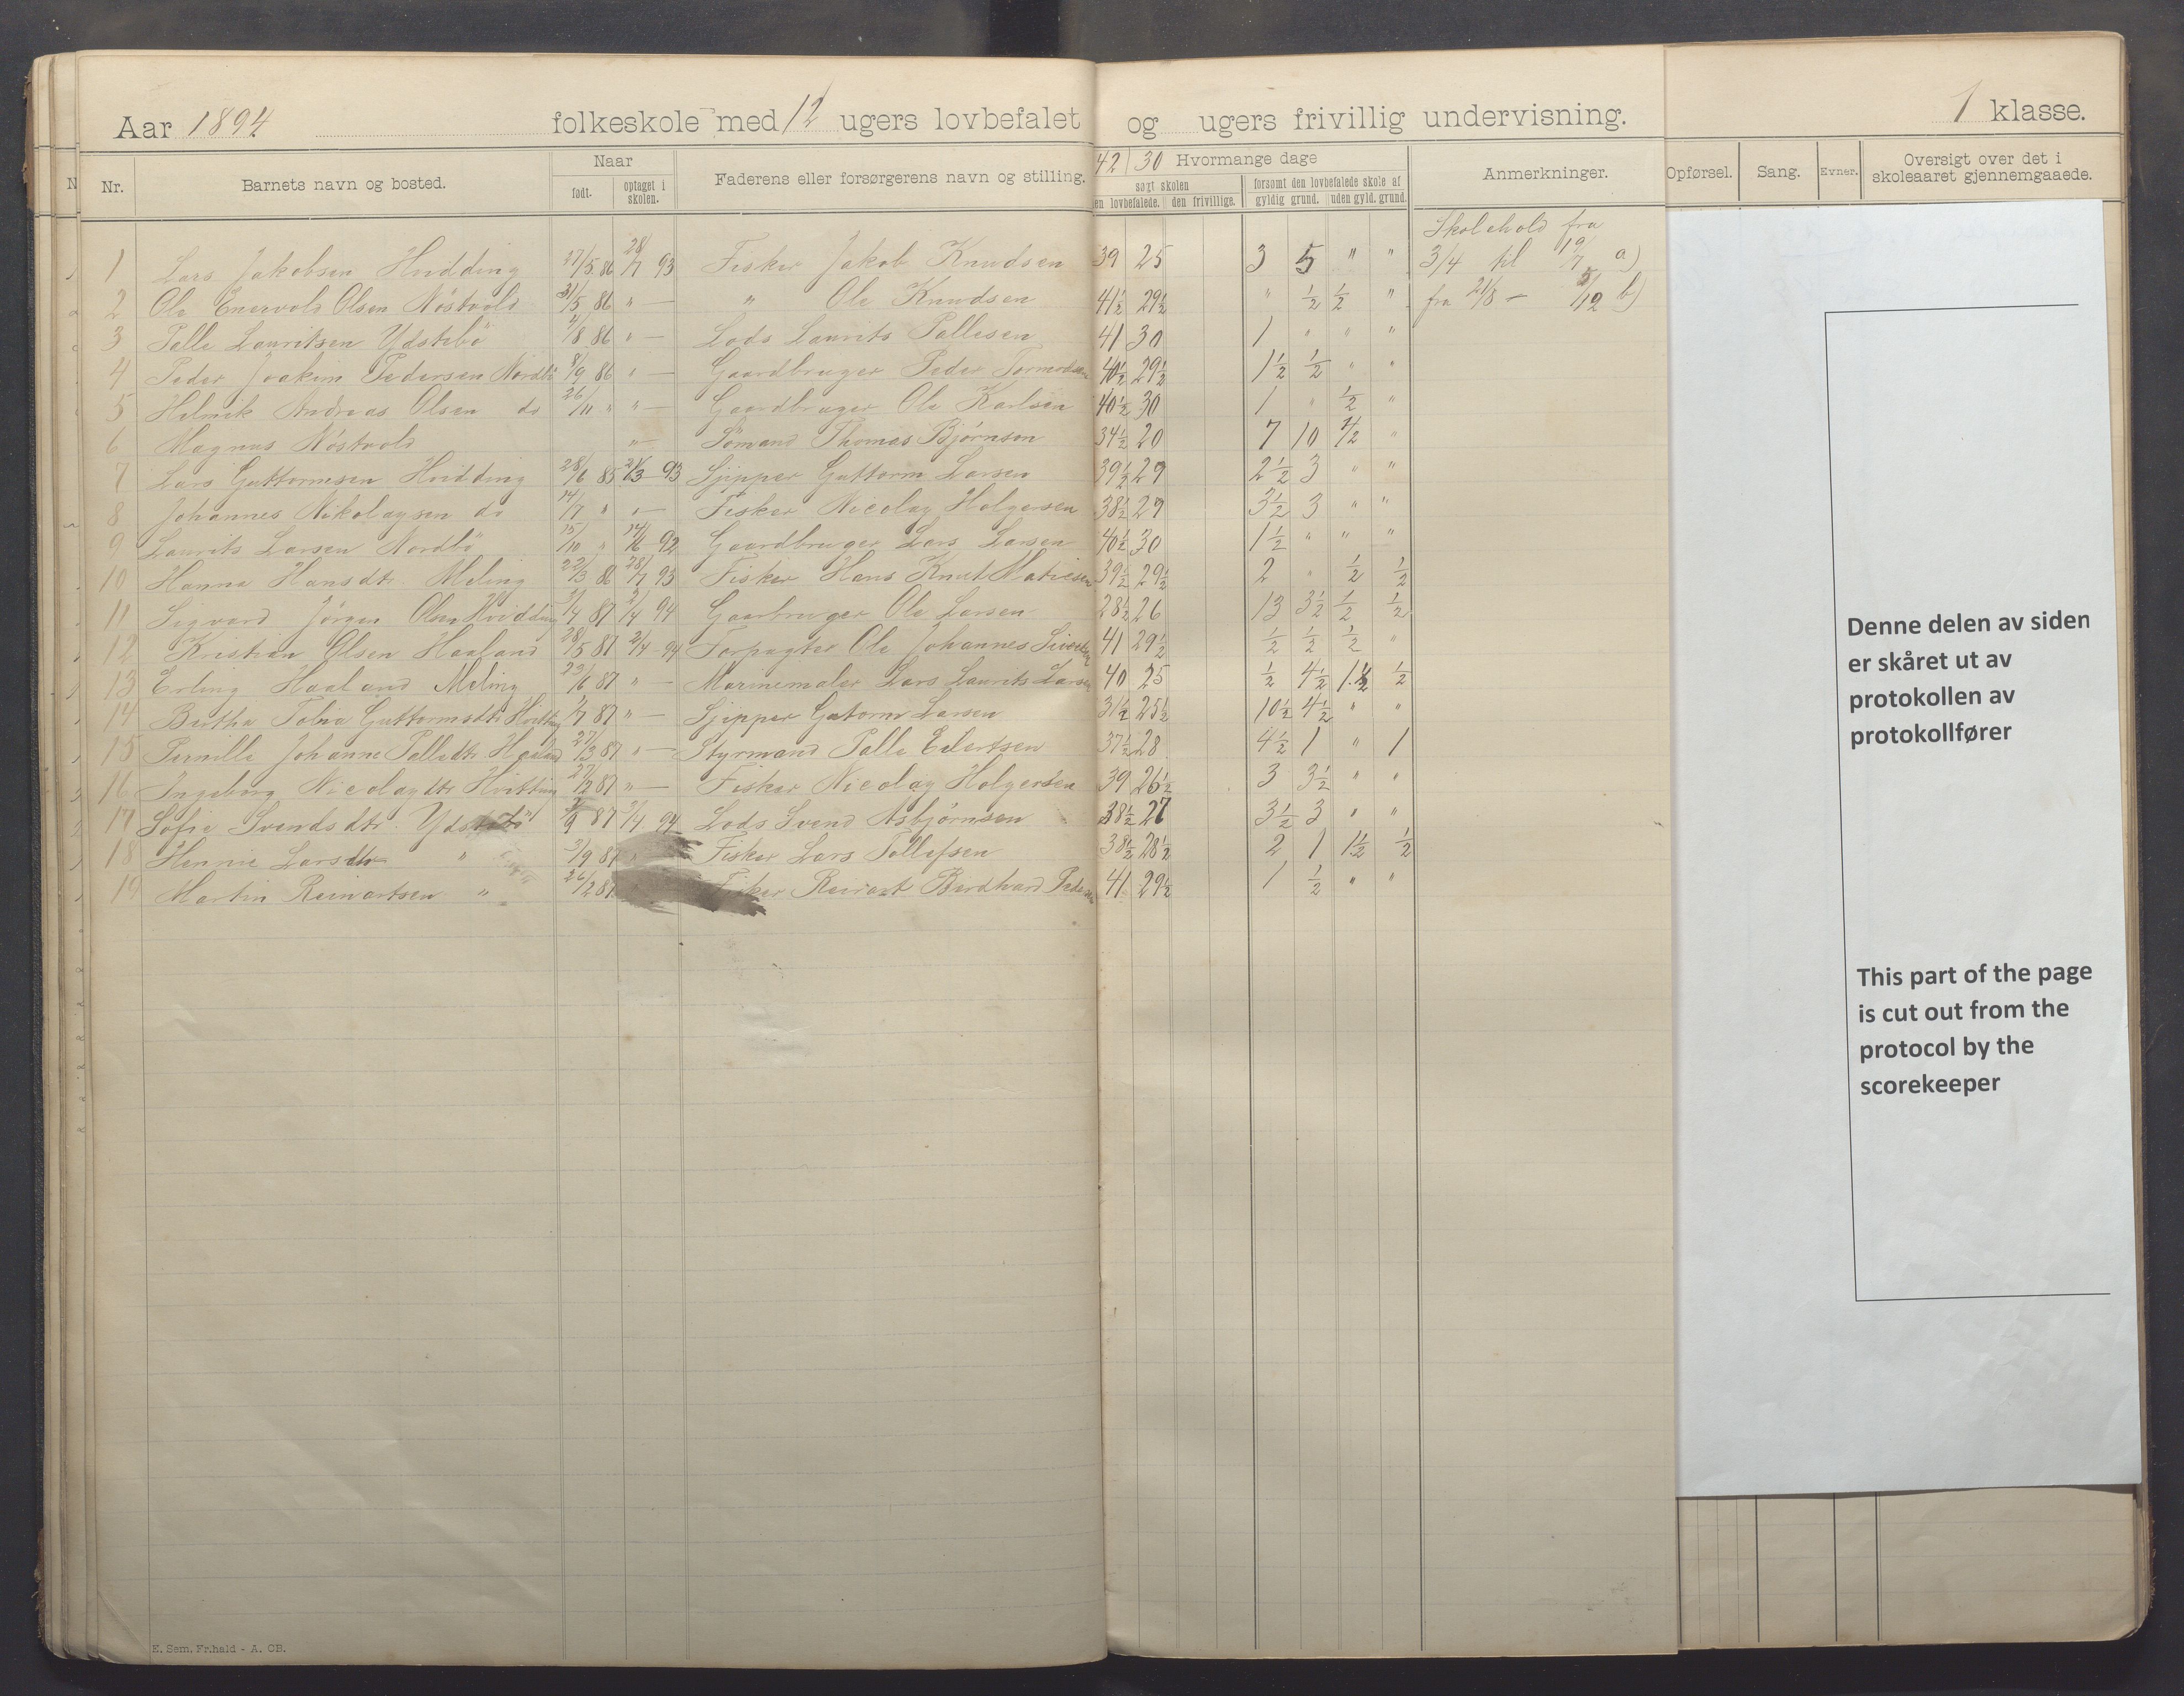 Aar 1894 folkeskole med 12 ugers lovbefalet og ugers frivillig undervisning. 1 klasse.
Nr. Barnets navn og bosted. Naar født. optaget i skolen. Faderens eller forsørgerens navn og stilling. 42 30 Hvormange dage søgt skolen den lovbefalede. den frivillige. forsømt den lovbefalede skole af gyldig grund. uden gyld. grund. Anmerkninger. Opførsel. Sang. Evner. Oversigt over det i skoleaaret gjennemgaaede.
Skolehold fra
1 Lars Jakobsen Hvidding 27/5 86 28/7 93 Fisker Jakob Knudsen 39 25 3 5 " " 3/4 til 19/7 a)
2 Ole Enevold Olsen Nöstvold 31/5 86 " — " Ole Knudsen 41½ 29½ " ½ ½ " fra 21/8 — 5/12 b)
3 Palle Lauritsen Ydstebö 4/8 86 " — Lods Laurits Pallesen 41 30 1 " " "
4 Peder Joakim Pedersen Nordbö 8/9 86 " — Gaardbruger Peder Tormodsen 40½ 29½ 1½ ½ " "
5 Helmik Andreas Olsen do 26/11 " " — Gaardbruger Ole Karlsen 40½ 30 1 " ½ "
6 Magnus Nöstvold " — Sömand Thomas Bjørnsen 34½ 20 7 10 ½ "
7 Lars Guttormsen Hvidding 28/6 85 21/3 93 Sjipper Guttorm Larsen 39½ 29 2½ 3 " "
8 Johannes Nikolaysen do 14/7 " " — Fisker Nicolay Holgersen 38½ 29 3½ 3 " "
9 Laurits Larsen Nordbö 15/10 " 14/6 92 Gaardbruger Lars Larsen 40½ 30 1½ " " "
10 Hanna Hansdtr. Meling 22/3 86 28/7 93 Fisker Hans Knut Matiesen 39½ 29½ 2 " ½ ½
11 Sigvard Jörgen Olsen Hvidding /4 87 2/4 94 Gaarbruger Ole Larsen 28½ 26 13 3½ ½ ½
12 Kristian Olsen Haaland 28/5 87 2/4 - 94 Forpagter Ole Johannes Sivertsen 41 29½ ½ ½ ½ "
13 Erling Haaland Meling 23/6 87 " — Marinemaler Lars Laurits Larsen 40 25 ½ 4½ 1½ ½
14 Bertha Tobia Guttormsdtr Hvitting 1/7 87 " — Sjipper Gutorm Larsen 31½ 25½ 10½ 4½ " "
15 Pernille Johanne Palledtr. Haaland 27/3 87 " — Styrmand Palle Edertsen 37½ 28 4½ 1 " 1
16 Ingeborg Nicolaydtr Hvitting 27/12 87 " — Fisker Nicolay Holgersen 39 26½ 3 3½ " "
17 Sofie Svendsdtr. Ydstebö /9 87 2/4 94 Lods Svend Asbjørnsen 38½ 27 3½ 3 " "
18 Hennie Larsdtr " 3/9 87 Fisker Lars Tollefsen 38½ 28½ 2 1 1½ ½
19 Martin Reinartsen " 26/2 87 Fisker Reinart Berdhard Pedersen 41 29½ 1 ½ " "
Denne delen av siden
er skåret ut av
protokollen av
protokollfører
This part of the page
is cut out from the
protocol by the
scorekeeper
E. Sem, Fr.hald - A. OB.